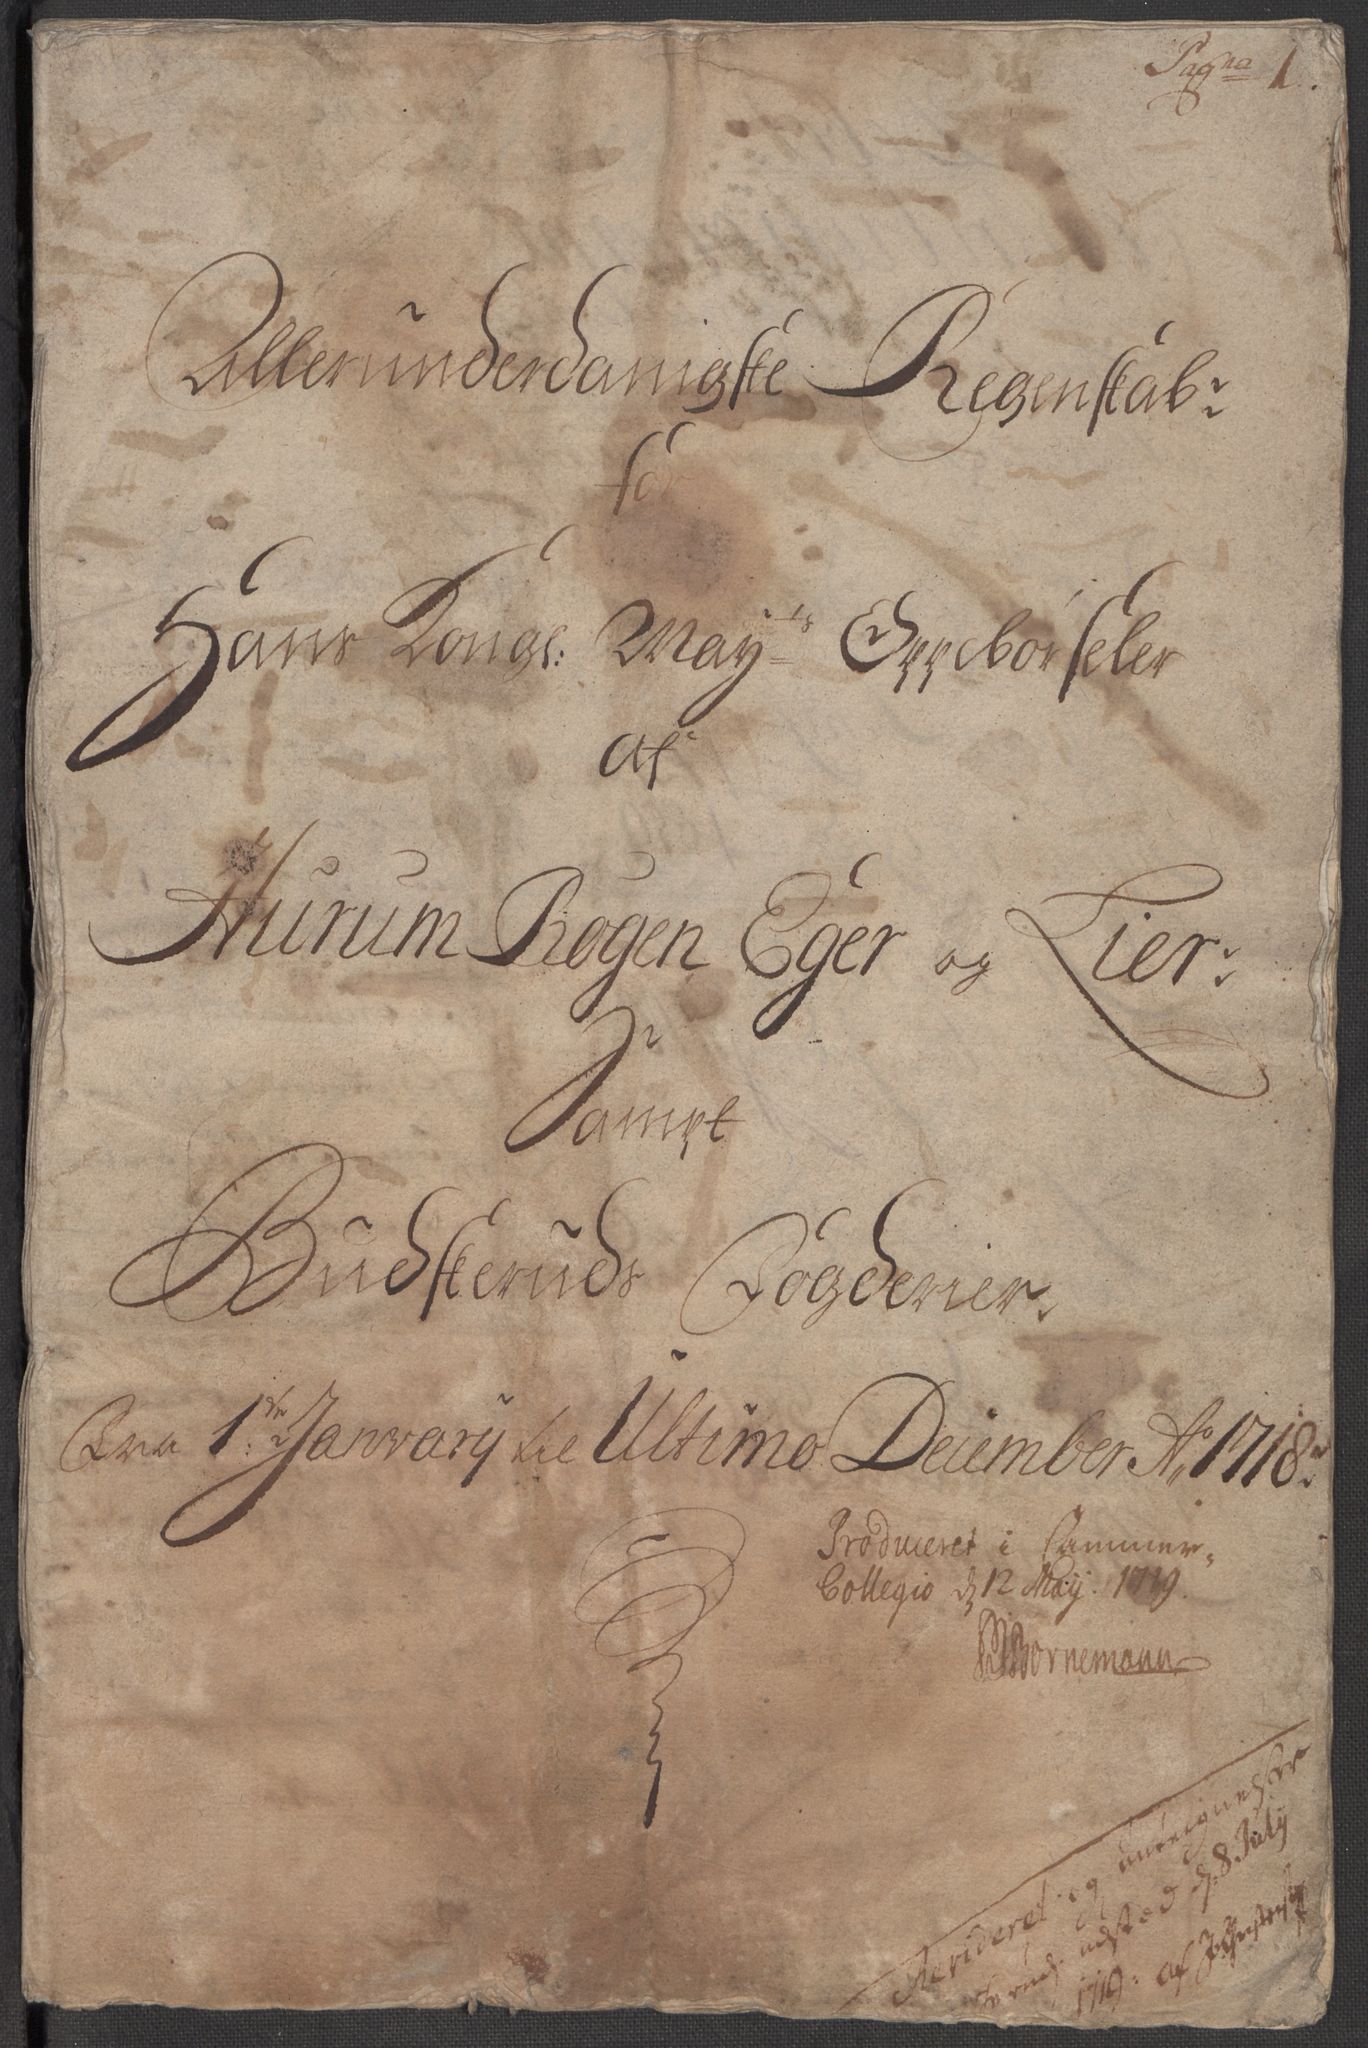 Pagna 1.
Allerunderdanigste Regenskab:
for
Hans Kongl: May:ts Oppebørseler
af
Hurum Røgen Eger og Lier:
Sampt
Budskeruds Fogderier:
Fra 1:ste January til Ultimo December Ao 1718:
Produceret i Cammer-
Collegio d 12 Maij. 1719.
Bornemann
Revideret og antegnelser
udsted d: 8 July
1719: af